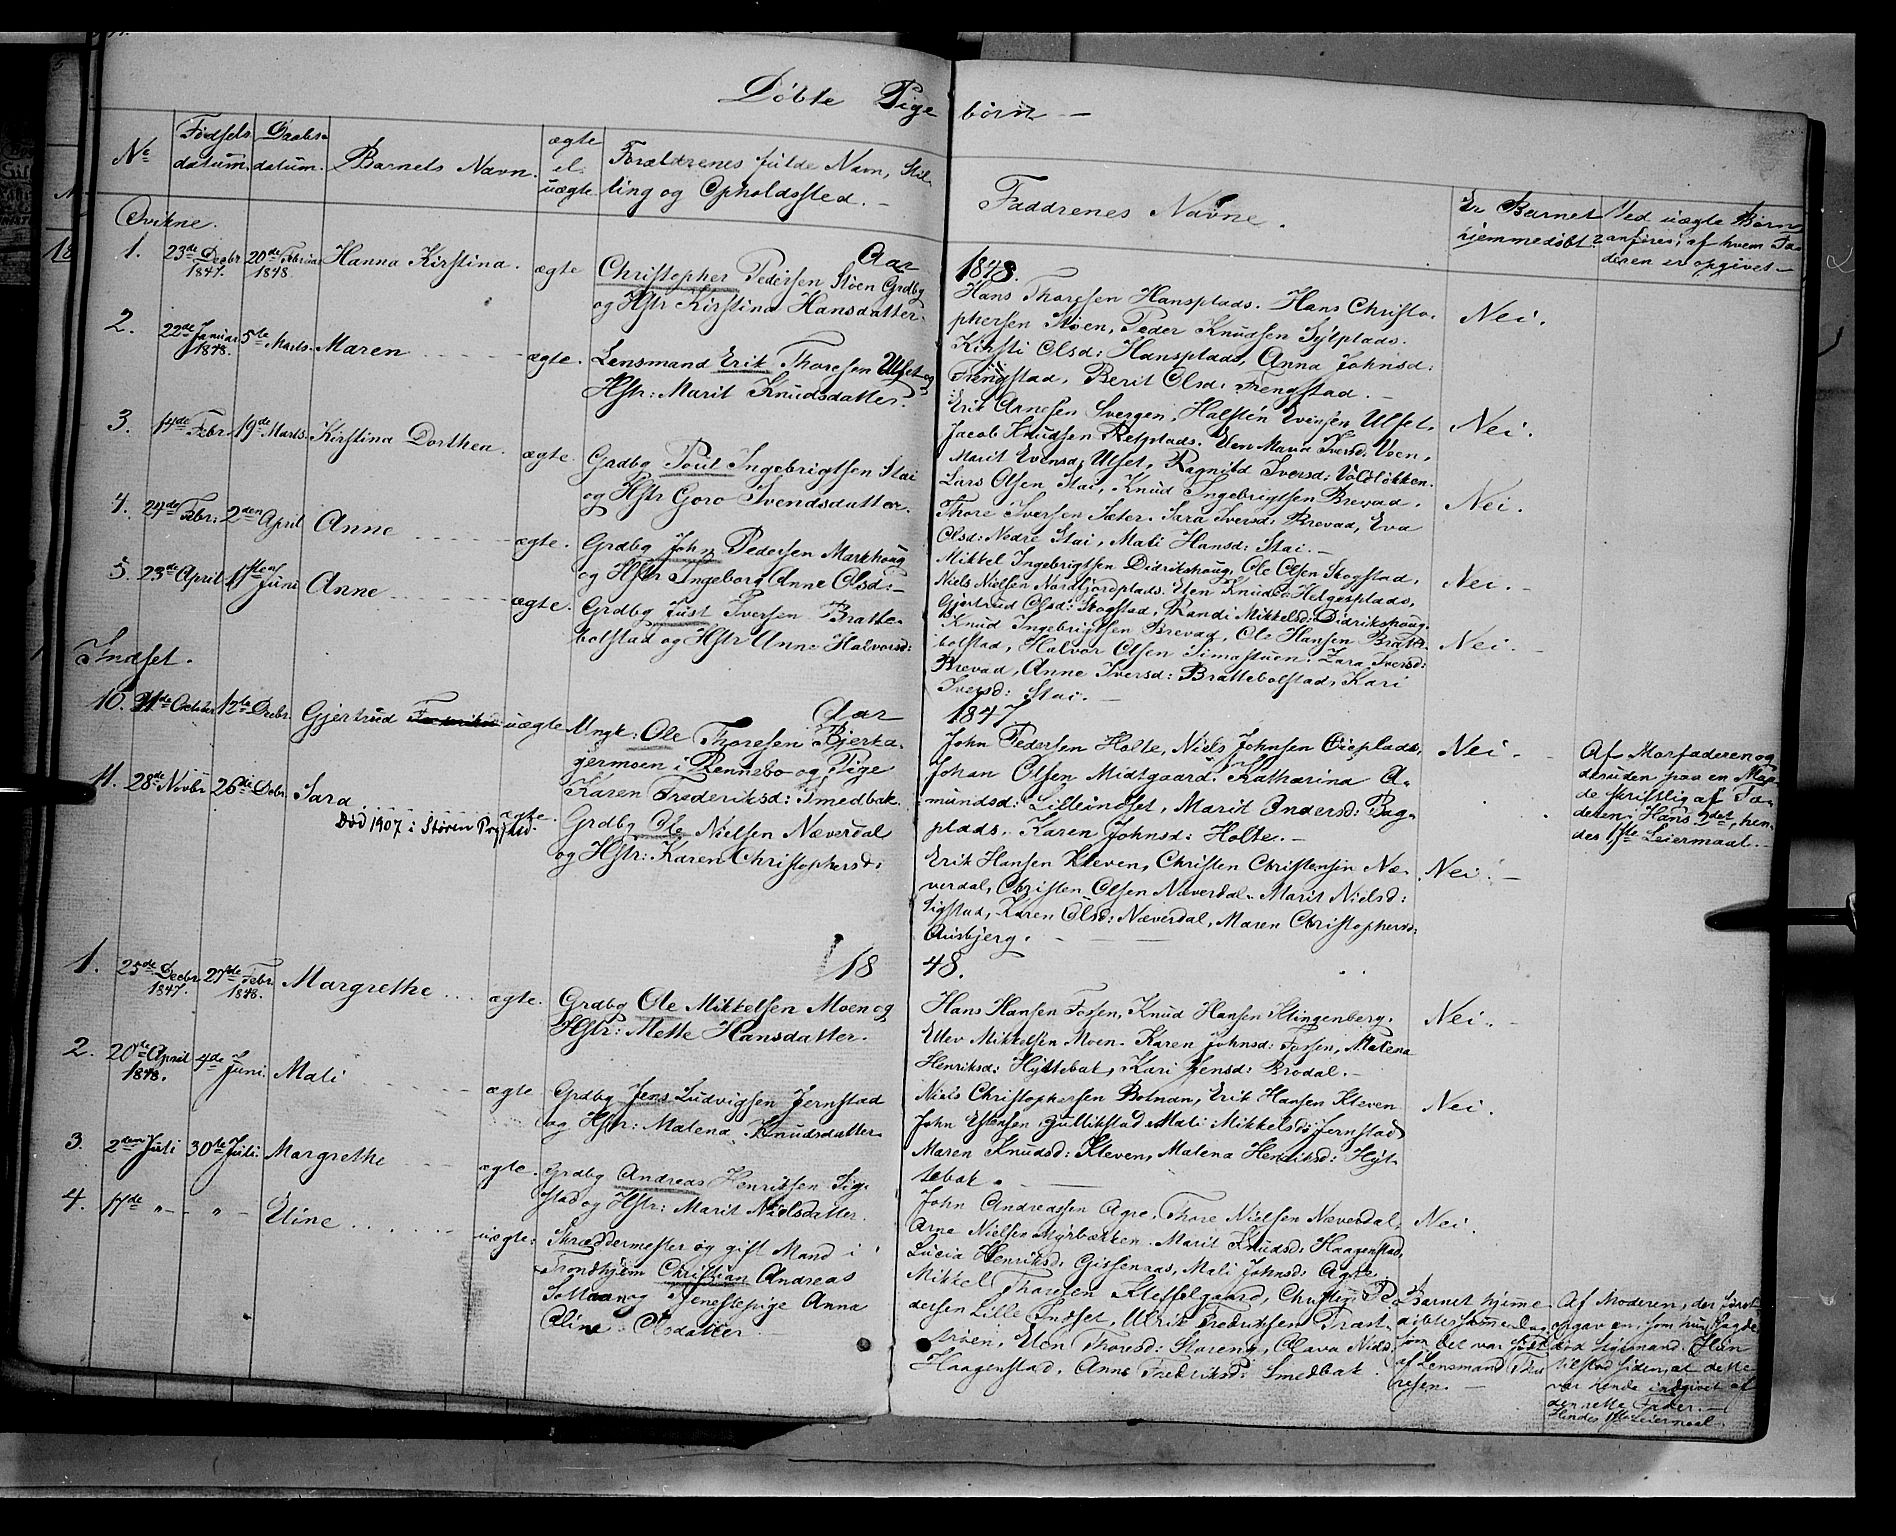 Døbte Pige børn —
No
Fødsels datum.
Daabs datum.
Barnets Navn.
ægte el. uægte
Forældrenes fulde Navn, Stilling og Opholdssted. —
Faddrenes Navne.
Er Barnet hjemmedøbt?
Ved uægte Børn anføres, af hvem Faderen er opgivet —
Qvikne.
Aar 1848.
1. 23de Decbr 1847. 20de Februar 1848 Hanna Kirstina. ægte
Christopher Pedersen Støen Grdbg
og Hstr Kirstina Hansdatter.
Hans Thoresen Hansplads. Hans Christo-
phersen Støen, Peder Knudsen Sylplads.
Kirsti Olsd: Hansplads, Anna Johnsd:
Frengstad, Berit Olsd: Frengstad. —
Nei.
2. 22de Januar 1848. 5te Marts. Maren ægte.
Lensmand Erik Thoresen Ulset og
Hstr: Marit Knudsdatter.
Erik Arnesen Svergen, Halstèn Evensen Ulset,
Jacob Knudsen Retplads. Elen Maria Iversd: Veen,
Marit Evensd, Ulset, Ragnild Iversd: Voldløkken.
Nei.
3. 14de Febr: 19de Marts. Kirstina Dorthea. ægte.
Grdbg Poul Ingebrigtsen Stai
og Hstr Goro Svendsdatter.
Lars Olsen Stai, Knud Ingebrigtsen Brevad.
Thore Iversen Sæter. Sara Iversd: Brevad, Eva
Olsd: Nedre Stai, Mali Hansd: Stai. —
Nei.
4. 24de Febr: 2den April Anne ægte.
Grdbg John Pedersen Markhoug
og Hstr Ingeborg Anne Olsd: —
Mikkel Ingebrigtsen Didrikshoug, Ole Olsen Skogstad,
Niels Nielsen Nordfjordplads. Elen Knudsd: Helgesplads,
Gjertrud Olsd: Skogstad, Randi Mikkelsd: Didrikshoug.
Nei. —
5. 23de April 11te Juni Anne ægte.
Grdbg Just Iversen Bratte-
bolstad og Hstr Anne Halvorsd:
Knud Ingebrigtsen Brevad, Ole Hansen Bratte-
bolstad, Halvor Olsen Simastuen. Zara Iversd:
Brevad, Anne Iversd: Brattebolstad, Kari
Iversd: Stai. —
Nei. —
Indset.
Aar 1847
10. October 12te Decbr. Gjertrud uægte
Ungk: Ole Thoresen Bjerka-
germoen i Rennebo og Pige
Karen Frederiksd: Smedbak.
John Pedersen Holte, Niels Johnsen Oieplads,
Johan Olsen Midtgaard. Katharina A-
mundsd: Lilleindset, Marit Andersd: Bag-
plads. Karen Johnsd: Holte. —
Nei —
Af Morfaderen og
desuden paa en Maa-
de skriftlig af Fa-
deren. Hans 2det, hen-
des 1ste Leiermaal. —
11. 28de Novbr 26de Debr. Sara ægte.
Død 1907 i Støren Prgjeld.
Grdbg Ole Nielsen Næverdal
og Hstr: Karen Christophersd:
Erik Hansen Kleven, Christen Christensen Næ-
verdal, Christen Olsen Næverdal. Marit Nielsd:
Sigstad, Karen Olsd: Næverdal, Maren Christophersd:
Ausbjerg. —
Nei. —
1848.
1. 25de Decbr 1847. 27de Febr 1848. Margrethe ægte.
Grdbg Ole Mikkelsen Moen og
Hstr: Mette Hansdatter.
Hans Hansen Fossen, Knud Hansen Klingenberg.
Ellev Mikkelsen Moen. Karen Johnsd: Fossen, Malena
Henriksd: Hyttebak, Kari Jensd: Brodal. —
Nei. —
2. 20de April 1848. 4de Juni. Mali ægte
Grdbg Jens Ludvigsen Jernstad
og Hstr: Malena Knudsdatter
Niels Christophersen Bolman, Erik Hansen Kleven
John Estensen Gullikstad. Mali Mikkelsd: Jernstad
Maren Knudsd: Kleven, Malena Henriksd: Hyt-
tebak. —
Nei.
3. 2den Juli 30te Juli. Margrethe ægte.
Grdbg Andreas Henriksen Sig-
stad og Hstr: Marit Nielsdatter.
John Andreassen Agre, Thore Nielsen Næverdal,
Arne Nielsen Myrbækken. Marit Knudsd: Haagenstad,
Lucia Henriksd: Gissenaas, Mali Johnsd: Agre.
Nei.
4. 11de „ — „ — Eline uægte:
Skræddermester og gift Mand i
Trondhjem Christian Andreas
og Tjenestepige Anna
Oline Olsdatter.
Mikkel Thoresen Steffelgaard, Christen Pe-
dersen Lille Indset, Ulrik Fredriksen Trast-
røen, Elen Thoresd: Storeng, Olava Nielsd:
Haagenstad, Anne Fredriksd: Smedbak.
Barnet hjemme-
døbt samme Dag
som det var født
af Lensmand Tho-
resen. —
Af Moderen, der først
opgav en, som hun sagde
død Sigemand. Hun
tilstod siden, at dette
var hende indgivet af
den rette Fader. —
Hendes 1ste Leiermaal.